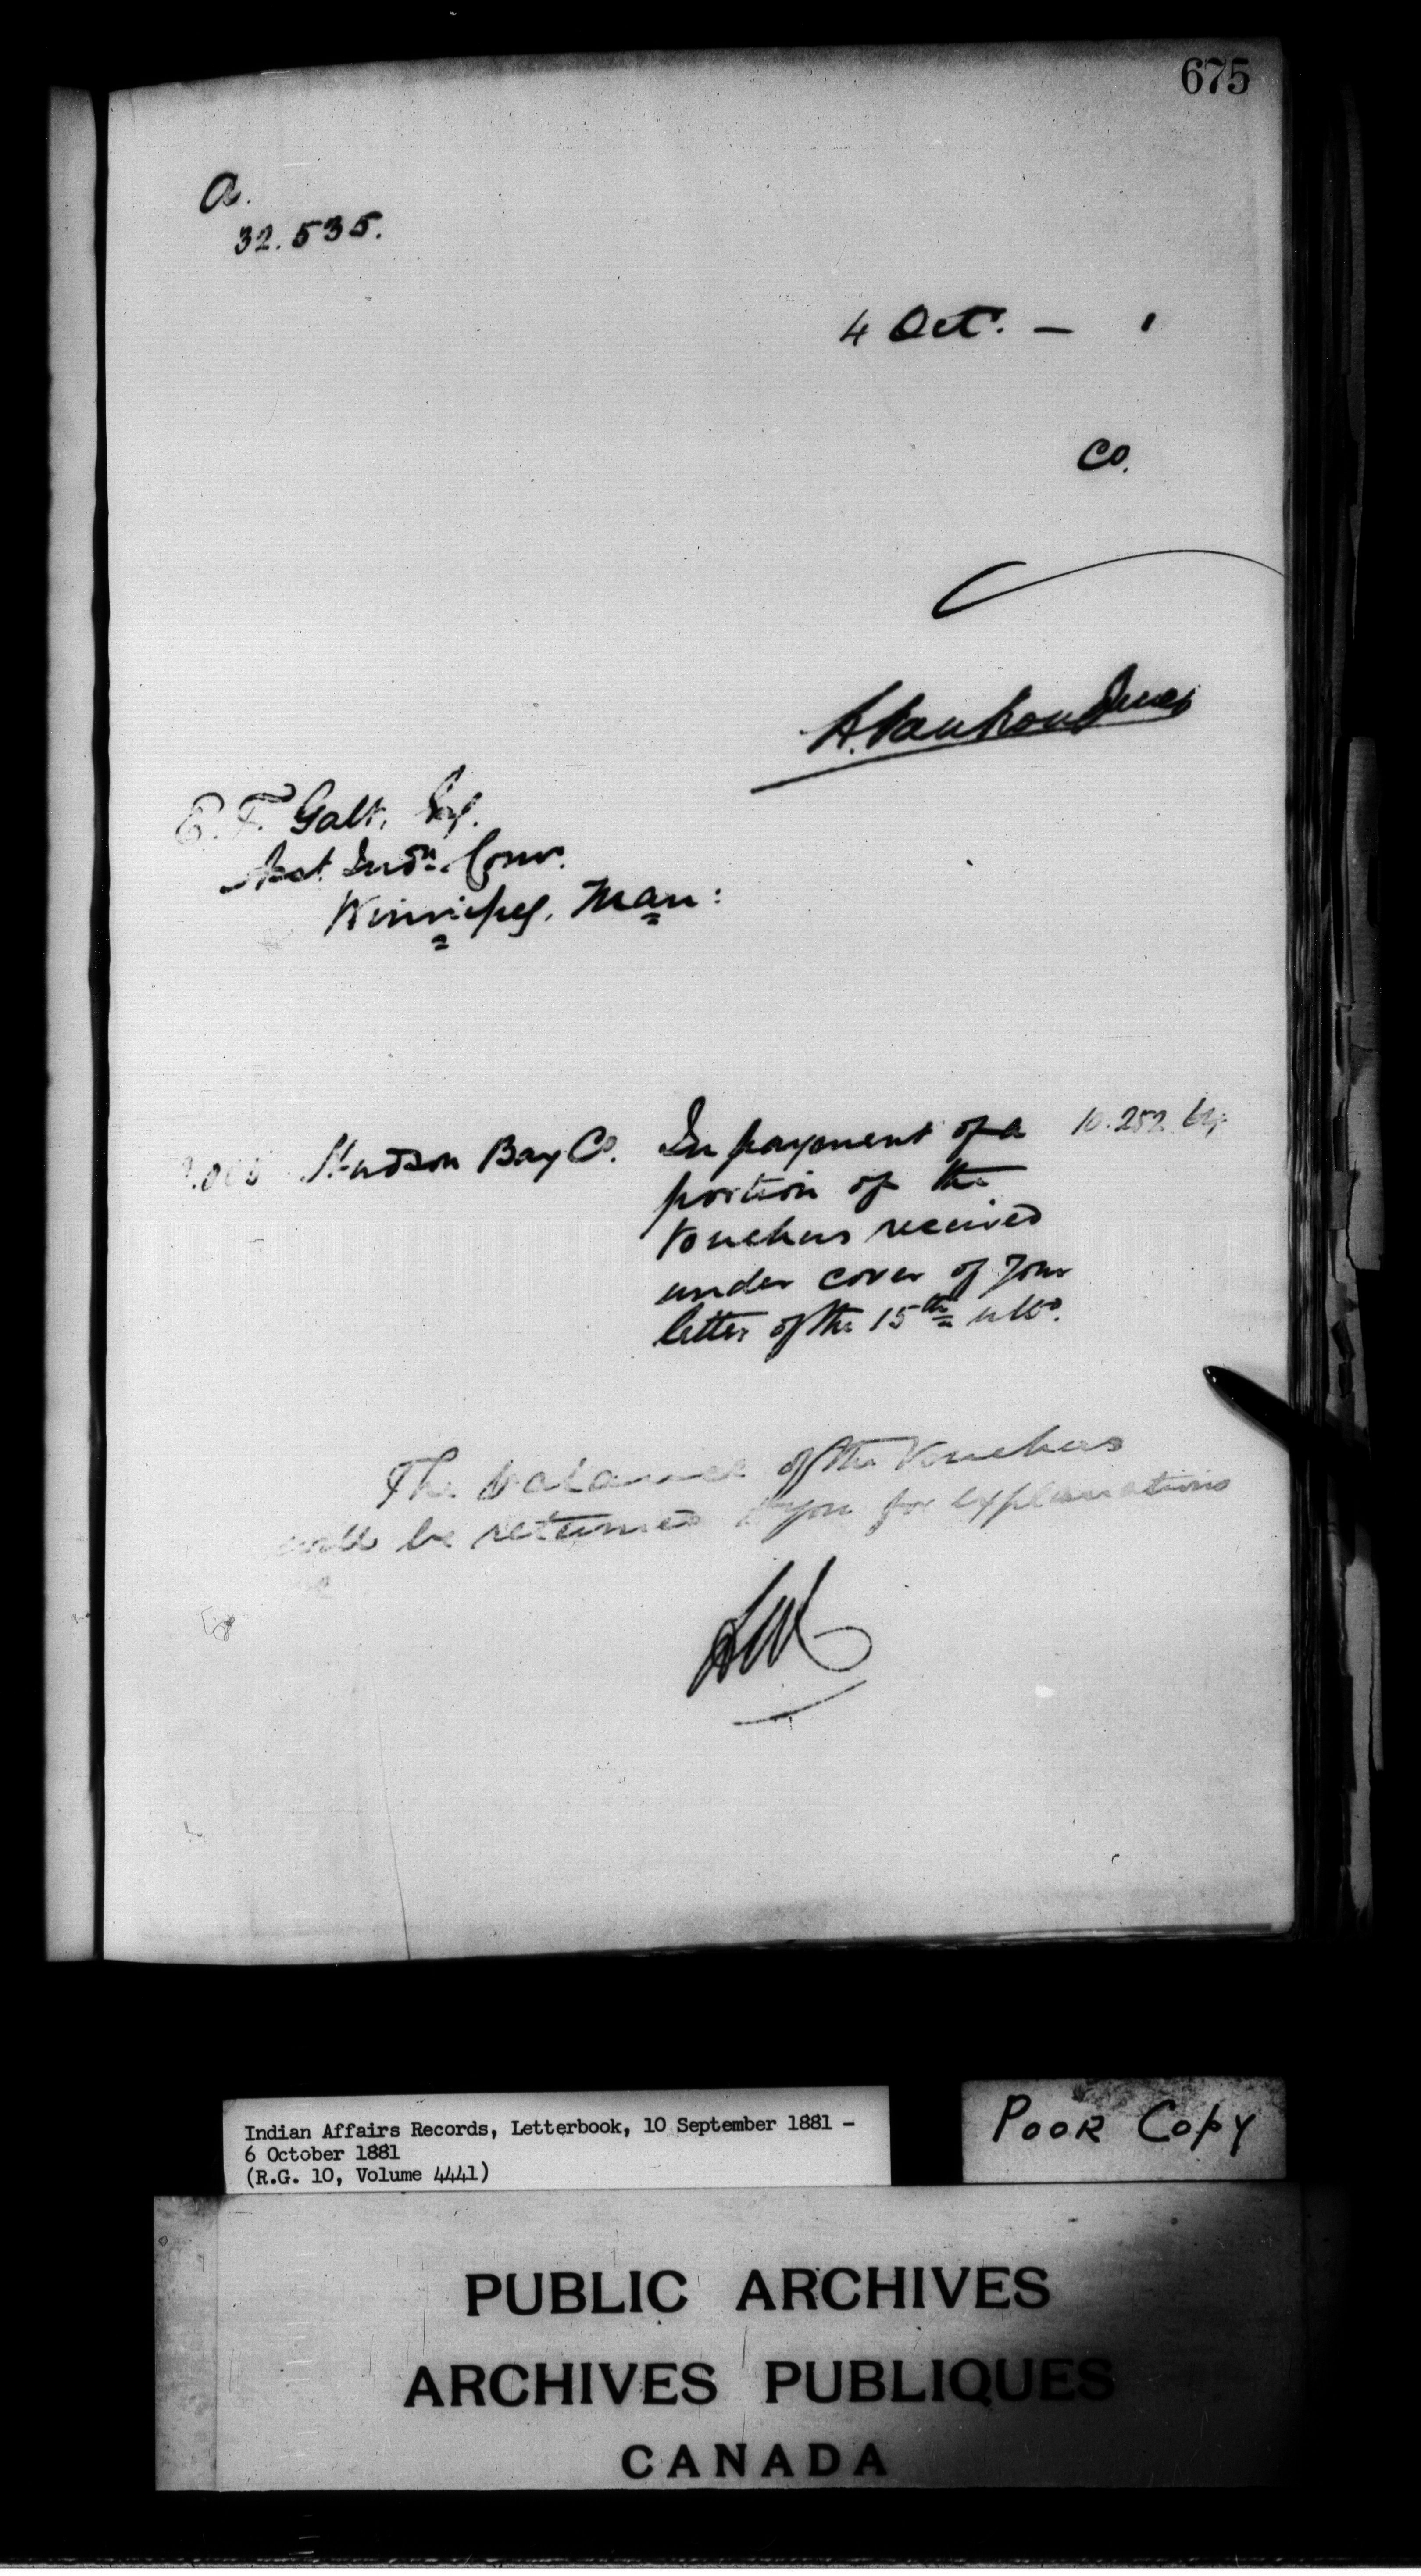 675
a.
32.535.
4 Octr. — 1
Co.
E. F. Galt, Esq.
Asst. Indn. Comr.
Winnipeg, Man:
Hudson Bay Co. In payment of a 10.252
portion of the
vouchers received
under cover of your
letter of the 15th ulto.
The balance of the vouchers
will be returned to you for explanations
Indian Affairs Records, Letterbook, 10 September 1881 -
6 October 1881
(R.G. 10, Volume 4441)
POOR COPY
PUBLIC ARCHIVES
ARCHIVES PUBLIQUES
CANADA